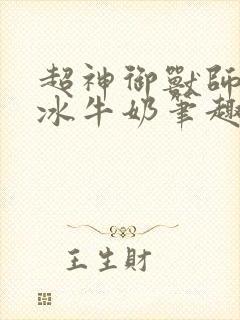 超神御獸師
冰牛奶筆趣
王生財